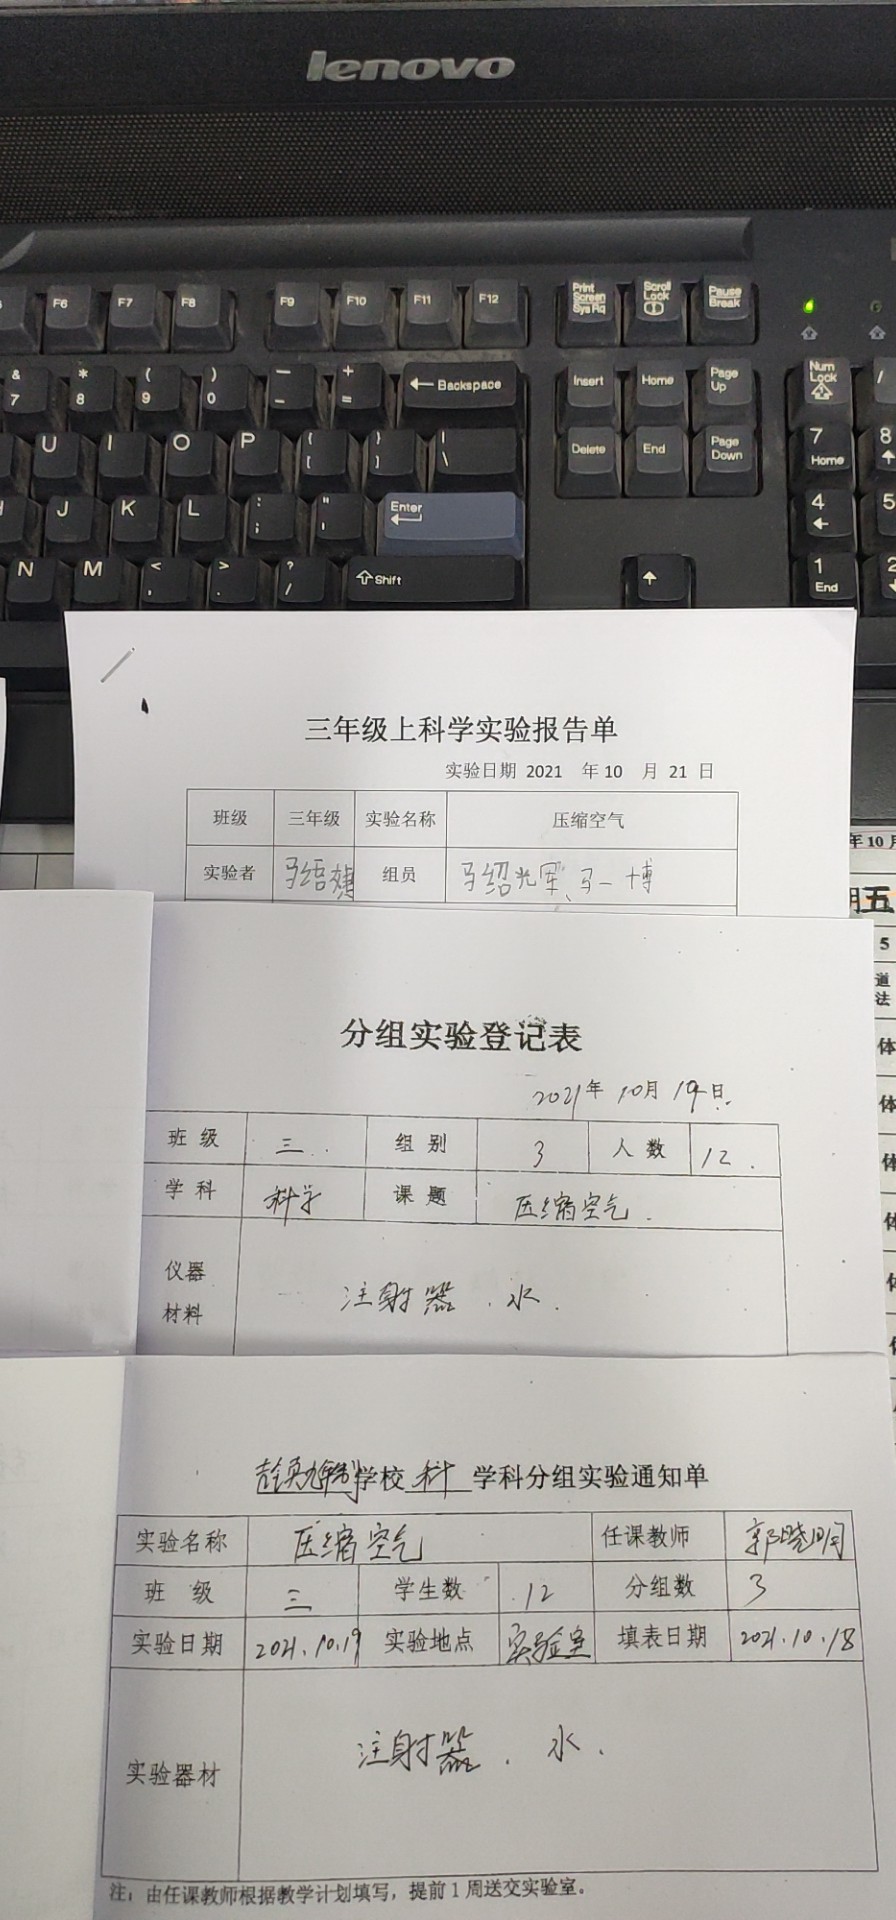 lenovo
F6 F7 F8 F9 F10 F11 F12 Print Screen SysRq Scroll Lock Pause Break
& 7 * 8 ( 9 ) 0 — - + = ← Backspace Insert Home Page Up Num Lock /
U I O P { [ } ] | \ Delete End Page Down 7 Home 8
J K L : ; " ' Enter 4 5
N M < , > . ? / Shift 1 End 2
三年级上科学实验报告单
实验日期 2021 年 10 月 21 日
班级 三年级 实验名称 压缩空气
实验者 组员 马绍光军、马一博
年 10 月
五
5
道
法
体
体
体
体
体
分组实验登记表
2021年 10月 19日.
班级 三 组别 3 人数 12.
学科 科学 课题 压缩空气.
仪器
材料 注射器.水.
学校 科 学科分组实验通知单
实验名称 压缩空气 任课教师 郭晓明
班级 三 学生数 12 分组数 3
实验日期 2021.10.19 实验地点 实验室 填表日期 2021.10.18
实验器材 注射器.水.
注：由任课教师根据教学计划填写，提前1周送交实验室。